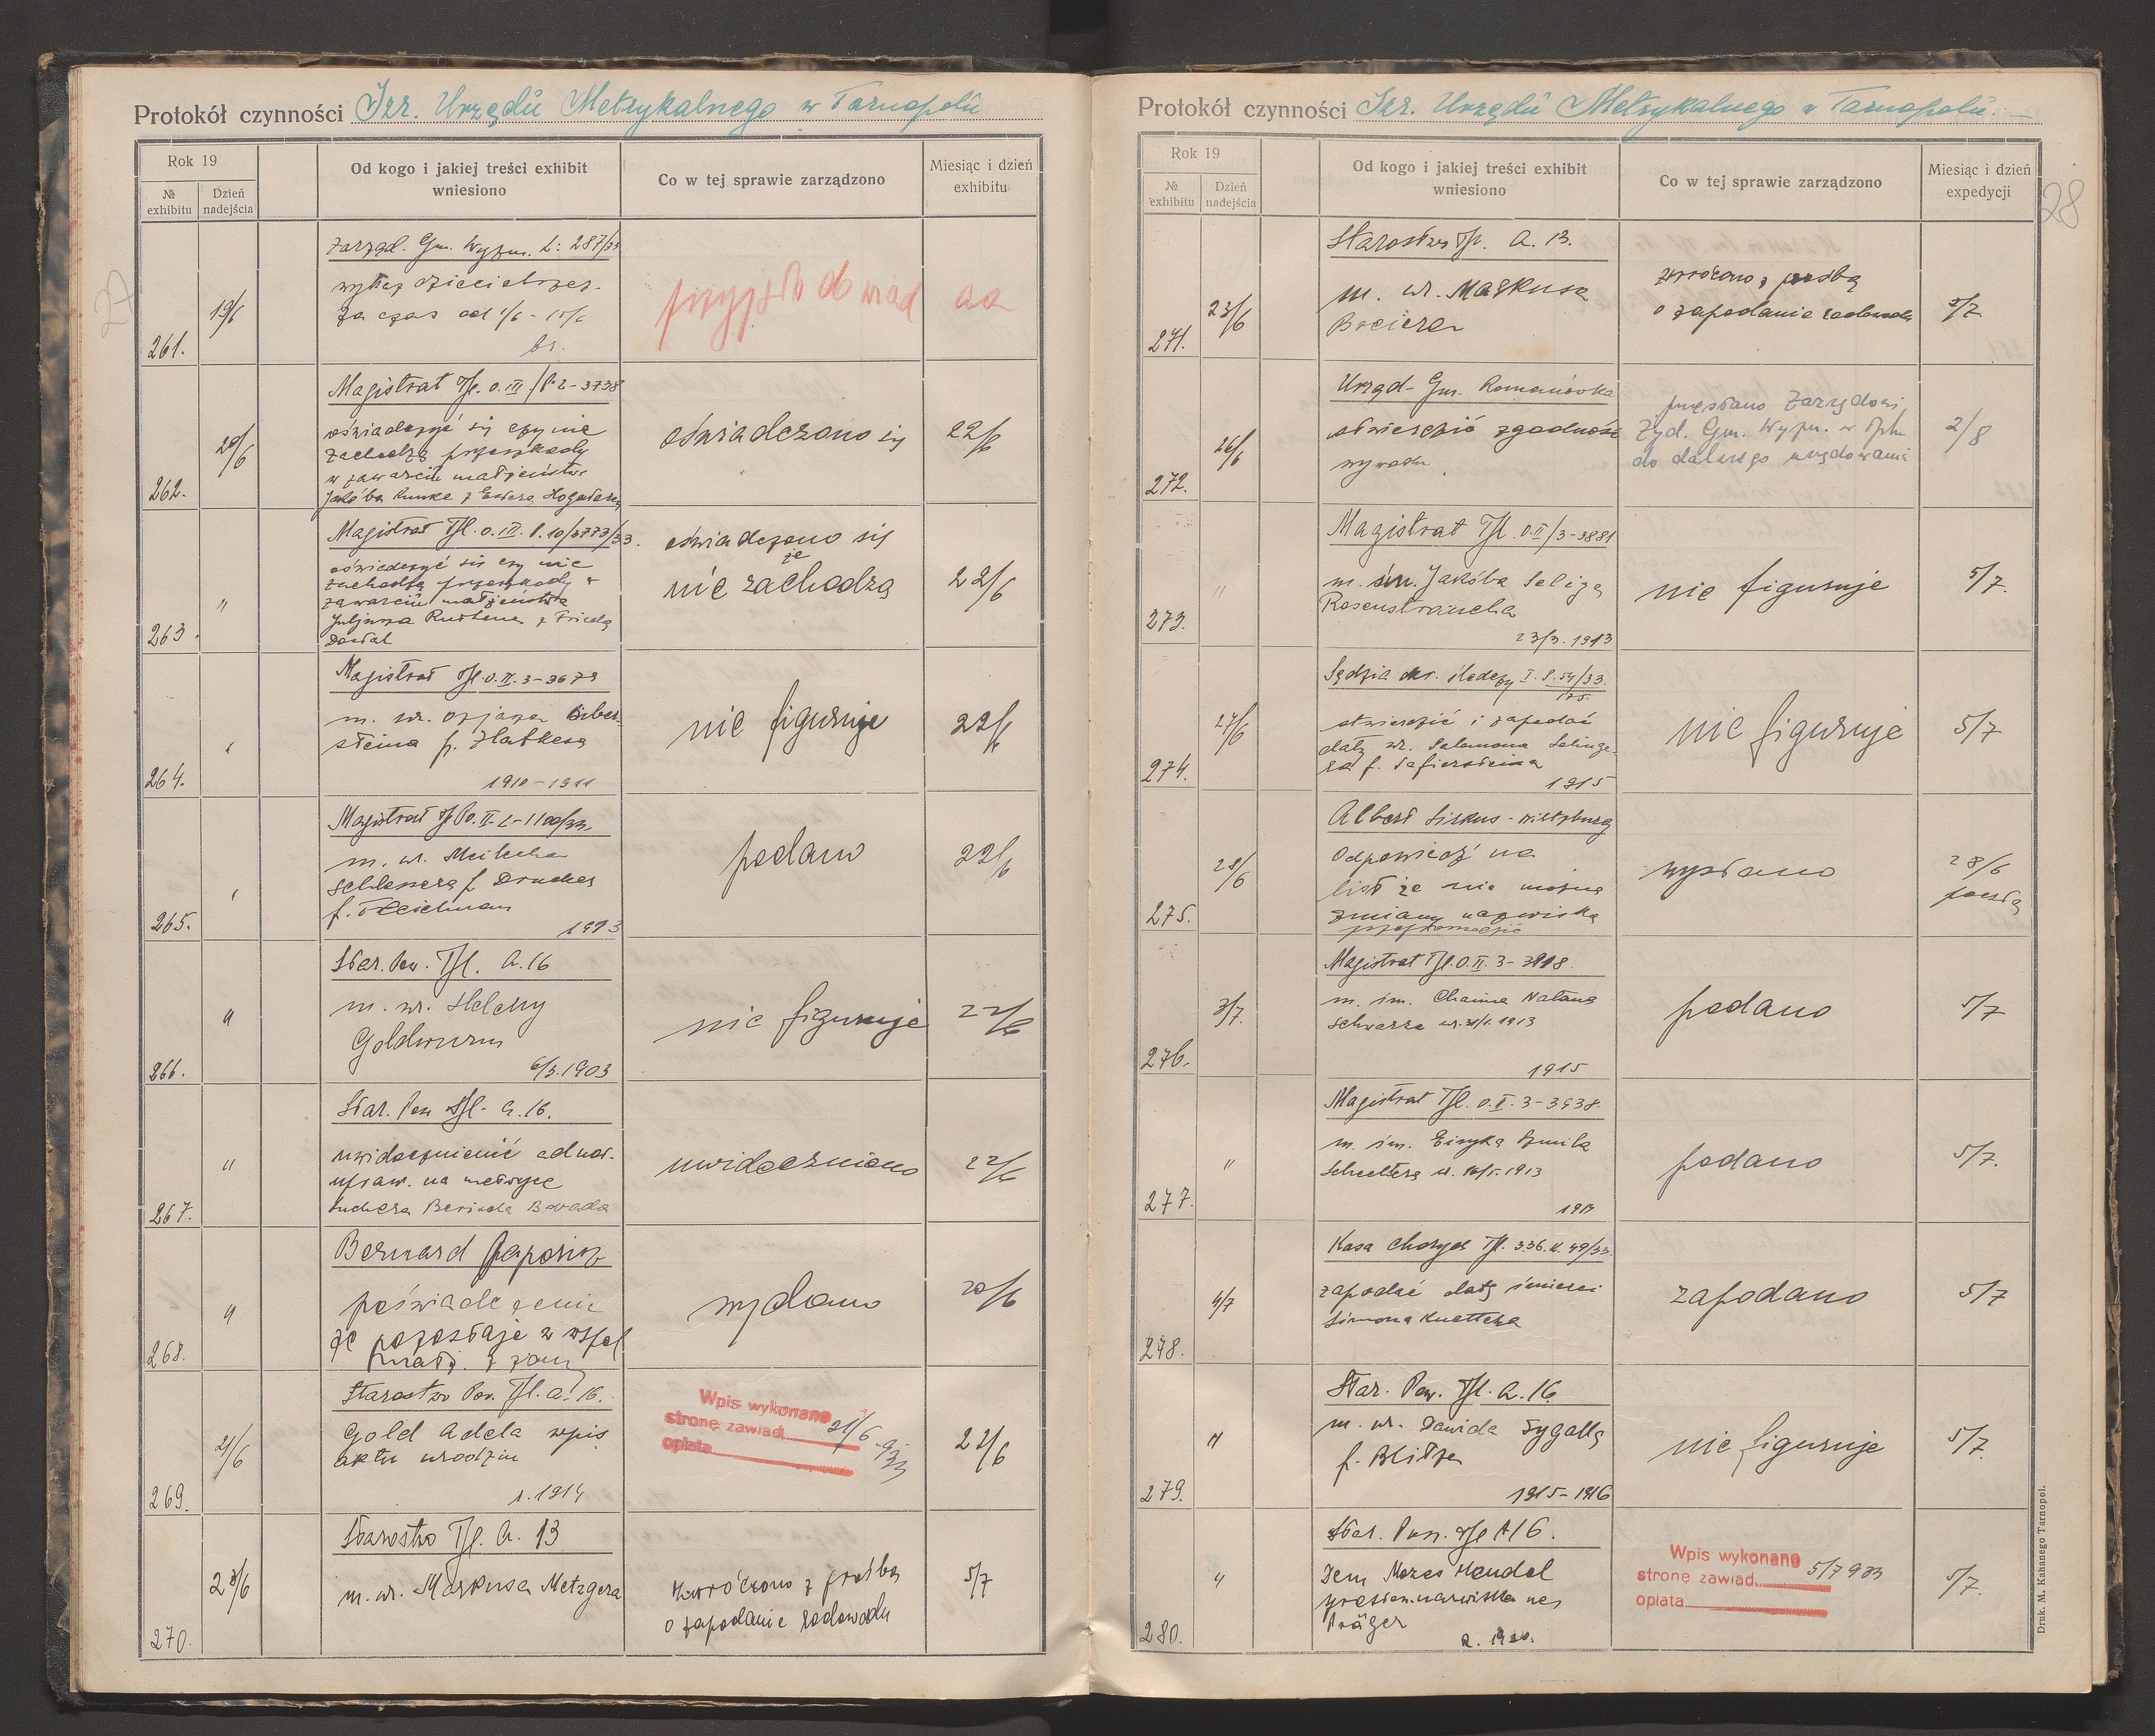 Protokół czynności Izr. Urzędu Metrykalnego w Tarnopolu
Rok 19
№ exhibitu
Dzień nadejścia
Od kogo i jakiej treści exhibit wniesiono
Co w tej sprawie zarządzono
Miesiąc i dzień exhibitu
27
261.
19/6
Zarząd. Gm. Wyzn. L: 287/33
za czas od 1/6 - 15/6
br.
przyjęto do wiad
aa
262.
20/6
Magistrat Tpl. O. III /P.2-3738
oświadczyć się czy nie
zachodzą przeszkody
w zawarciu małżeństwa
Jakóba
oświadczono się
22/6
263.
"
Magistrat Tpl. O. III. P. 10/3773/33.
oświadczyć się czy nie
zachodzą przeszkody w
zawarciu małżeństwa
Juljusza
oświadczono się
że
nie zachodzą
22/6
264.
Magistrat Tpl. O. II. 3-3673
m. ur. Ozjasza Biber-
steina f. Zlatkesa
1910-1911
nie figuruje
22/6
265.
Magistrat Tpl O. II-L-1100/33
m. ur. Meilecha
Schlessera f. Drucker
podano
22/6
266.
"
Star. Pow. Tpl. A.16
m. ur. Heleny
Goldwurm
6/3.1903
nie figuruje
22/6
267.
"
Star. Pow Tpl. A. 16.
uwidocznienie adnot.
na metryce
uwidoczniono
22/6
268.
"
Bernard
poświadczenie
że pozostaje w wspól
małż. z żoną
wydano
20/6
269.
21/6
Starostwo Pow. Tpl. A. 16.
Gold Adela wpis
aktu urodzin
r. 1914
Wpis wykonano
stronę zawiad. 21/6 933
opłata
22/6
270.
23/6
Starostwo Tpl. A. 13
m. ur. Markusa Metzgera
zwrócono z prośbą
o zapodanie rodowodu
5/7
Protokół czynności Izr. Urzędu Metrykalnego w Tarnopolu. –
Rok 19
№ exhibitu
Dzień nadejścia
Od kogo i jakiej treści exhibit wniesiono
Co w tej sprawie zarządzono
Miesiąc i dzień expedycji
28
271.
23/6
Starostwo Tpl. A. 13.
m. ur. Markusa
zwrócono z prośbą
o zapodanie rodowodu
5/7
272.
26/6
Urząd Gm. Romanówka
stwierdzić zgodność
wywodu
przesłano Zarządowi
Żyd. Gm. Wyzn. w Tplu
do dalszego urzędowania
2/8
273.
"
Magistrat Tpl. O. II/3-3881
m. śm. Jakóba Seliga
Rosenstraucha
23/3. 1913
nie figuruje
5/7.
274.
27/6
Sędzia okr. śledczy I. S. 54/33.
175.
stwierdzić i zapodać
datę ur. Salamona Selinge-
ra f. Safiersteina
1915
nie figuruje
5/7
275.
28/6
Odpowiedź na
list że nie można
zmiany nazwiska
wysłano
28/6
pocztą
276.
3/7.
Magistrat Tpl. O. II. 3-3918.
m. śm. Chaima Natana
Schwarza
1915
podano
5/7
277.
"
Magistrat Tpl. O. II. 3-3938.
m. śm. Eisyka Szmila
Schechtera
podano
5/7.
278.
4/7
Kasa Chorych Tpl. 336. II. 49/33.
zapodać datę śmierci
Simona
zapodano
5/7
279.
"
Star. Pow. Tpl. A. 16.
m. ur. Dawida Sygalla
f. Blitzer
1915-1916
nie figuruje
5/7.
280.
"
Star. Pow. Tpl A 16.
Dem Mozes Mendel
Präger
Wpis wykonano
stronę zawiad. 5/7 933
opłata
5/7.
Druk. M. Kahanego Tarnopol.